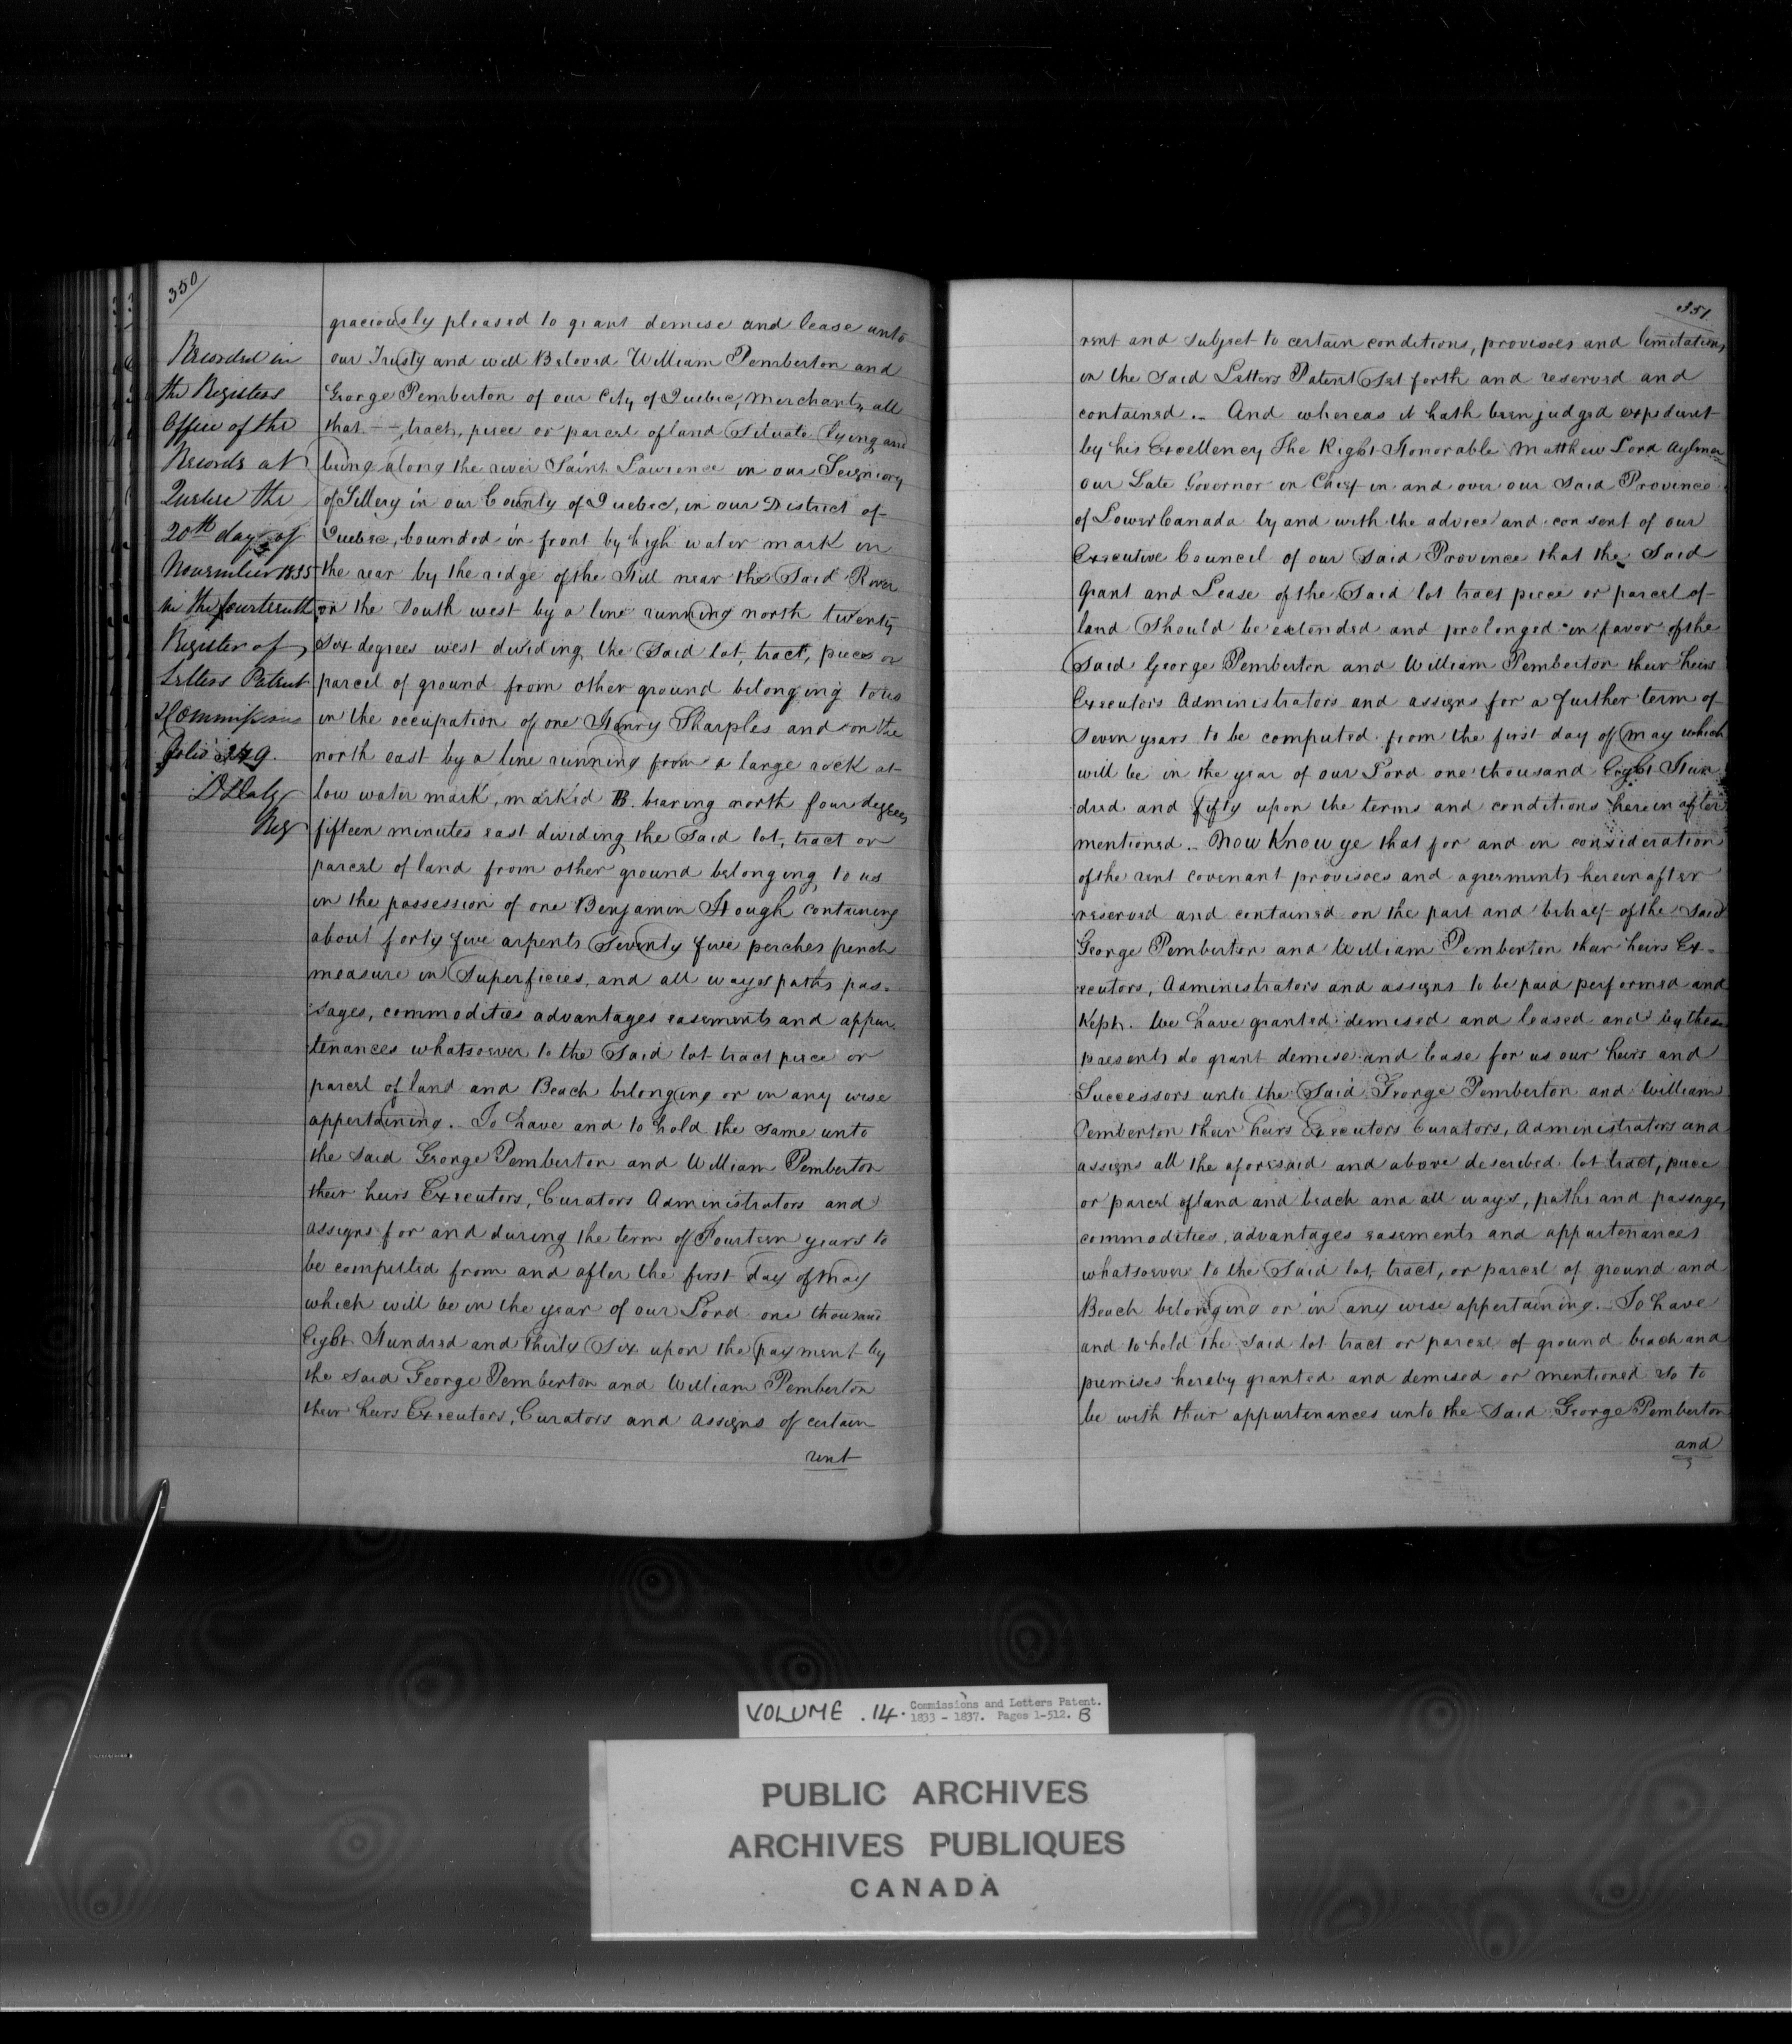 350
Recorded in
the Registers
Office of the
Records at
Quebec the
20th day of
November 1835
in the fourteenth
Register of
Letters Patent
& Commissions
folio 349.
D Daly
Reg
graciously pleased to grant demise and lease unto
our Trusty and well Beloved William Pemberton and
George Pemberton of our City of Quebec, Merchants, all
that - - tract, piece or parcel of land Situate lying and
being along the river Saint Lawrence in our Seigniory
of Sillery in our County of Quebec, in our District of
Quebec, bounded in front by high water mark in
the rear by the ridge of the Hill near the Said River
on the South west by a line running north twenty
Six degrees west dividing the Said lot, tract, piece or
parcel of ground from other ground belonging to us
in the occupation of one Henry Sharples and on the
north east by a line running from a large rock at
low water mark, marked B. bearing north four degrees
fifteen minutes east dividing the Said lot, tract or
parcel of land from other ground belonging to us
in the possession of one Benjamin Hough containing
about forty five arpents Seventy five perches french
measure in Superficies, and all ways paths pas-
sages, commodities advantages easements and appur
tenances whatsoever to the Said lot tract piece or
parcel of land and Beach belonging or in any wise
appertaining. To have and to hold the same unto
the Said George Pemberton and William Pemberton
their heirs Executors, Curators Administrators and
assigns for and during the term of Fourteen years to
be computed from and after the first day of May
which will be in the year of our Lord one thousand
Eight Hundred and thirty Six upon the payment by
the Said George Pemberton and William Pemberton
their heirs Executors, Curators and assigns of certain
rent
351
rent and subject to certain conditions, provisoes and limitations
in the Said Letters Patent Set forth and reserved and
contained. - And whereas it hath been judged expedient
by his Excellency The Right Honorable Matthew Lord Aylmer
our Late Governor in Chief in and over our Said Province
of Lower Canada by and with the advice and consent of our
Executive Council of our Said Province that the Said
Grant and Lease of the Said lot tract piece or parcel of
land Should be extended and prolonged in favor of the
Said George Pemberton and William Pemberton their heirs
Executors Administrators and assigns for a further term of
Seven years to be computed from the first day of May which
will be in the year of our Lord one thousand Eight Hun
dred and fifty upon the terms and conditions herein after
mentioned. - Now Know ye that for and in consideration
of the rent covenant provisoes and agreements herein after
reserved and contained on the part and behalf of the Said
George Pemberton and William Pemberton their heirs Ex-
ecutors, Administrators and assigns to be paid performed and
Kept. We have granted demised and leased and by these
presents do grant demise and lease for us our heirs and
Successors unto the Said George Pemberton and William
Pemberton their heirs Executors Curators, Administrators and
assigns all the aforesaid and above described lot tract, piece
or parcel of land and beach and all ways, paths and passages
commodities, advantages easements and appurtenances
whatsoever to the Said lot, tract, or parcel of ground and
Beach belonging or in any wise appertaining. - To have
and to hold the Said lot tract or parcel of ground beach and
premises hereby granted and demised or mentioned So to
be with their appurtenances unto the Said George Pemberton
and
VOLUME . 14. Commissions and Letters Patent.
1833 - 1837. Pages 1-512. B
PUBLIC ARCHIVES
ARCHIVES PUBLIQUES
CANADA